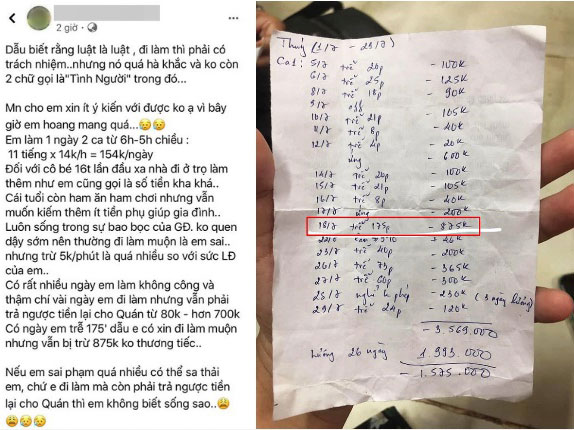 2 giờ
Dẫu biết rằng luật là luật , đi làm thì phải có
trách nhiệm..nhưng nó quá hà khắc và ko còn
2 chữ gọi là"Tình Người" trong đó...
Mn cho em xin ít ý kiến với được ko ạ vì bây
giờ em hoang mang quá...😥😥
Em làm 1 ngày 2 ca từ 6h-5h chiều :
11 tiếng x 14k/h = 154k/ngày
Đối với cô bé 16t lần đầu xa nhà đi ở trọ làm
thêm như em cũng gọi là số tiền kha khá..
Cái tuổi còn ham ăn ham chơi nhưng vẫn
muốn kiếm thêm ít tiền phụ giúp gia đình..
Luôn sống trong sự bao bọc của GĐ. ko quen
dậy sớm nên thường đi làm muộn là em sai..
nhưng trừ 5k/phút là quá nhiều so với sức LĐ
của em..
Có rất nhiều ngày em làm không công và
thậm chí vài ngày em đi làm nhưng vẫn phải
trả ngược tiền lại cho Quán từ 80k - hơn 700k
Có ngày em trễ 175' dẫu e có xin đi làm muộn
nhưng vẫn bị trừ 875k ko thương tiếc..
Nếu em sai phạm quá nhiều có thể sa thải
em, chứ e đi làm mà còn phải trả ngược tiền
lại cho Quán thì em không biết sống sao..😩
😩😥😥
Thuý (1/7 - 29/7)
Ca1: 5/7 trễ 20p - 100k
6/7 trễ 25p - 125k
8/7 trễ 18p - 90k
9/7 off
10/7 trễ 21p - 105k
trễ 8p - 40k
12/7 trễ 4p - 20k
ứng - 600k
14/7 trễ 20p - 100k
15/7 trễ 21p - 105k
16/7 trễ 8p - 40k
17/7 ứng - 200k
18/7 trễ 175p - 875k
- 40k
23/7 trễ 40p - 200k
26/7 trễ 73p - 365k
27/7 trễ 60p - 300k
28/7 nghỉ k phép - 230k (3 ngày lương)
29/7 trễ 24p - 120k
- 3.569.000
lương 26 ngày 1.993.000
- 1.575.000